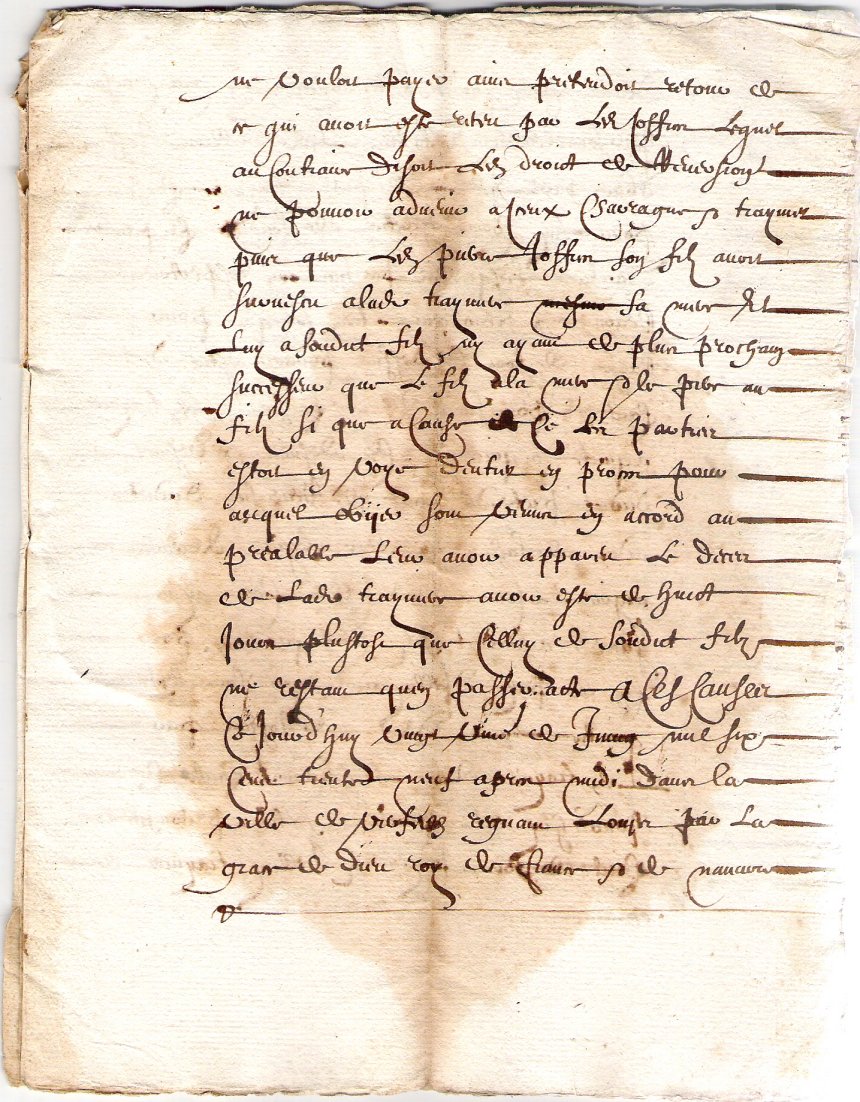 ne vouloit payer ains pretendoit retour de
ce qui avoit esté par Led Joffren Lequel
au Contraire disoit Led droict de Reversiong
ne pouvoir advenir a Iceux Chavagne &
puis que Led pierre Joffren son filz avoit
survescu alade sa mere Et
Luy a soudict filz ny ayant de plus prochaing
successeur que Le filz a la mere & le pere au
filz si que a Cause de Ce Les parties
estoit en voye dentrer en proces pour
auquel obvier sont venues en accord au
prealable Leur avoir apparen Le deces
de Lade avoir esté de huict
Jours plustost que Celluy de soudict filz
ne restant quen passer acte A Ces Causes
Ce Jourd huy vingt de Juing mil six
Cens trente neuf apres midi dans la
ville de regnant Louys par La
grace de dieu roy de france & de navarre